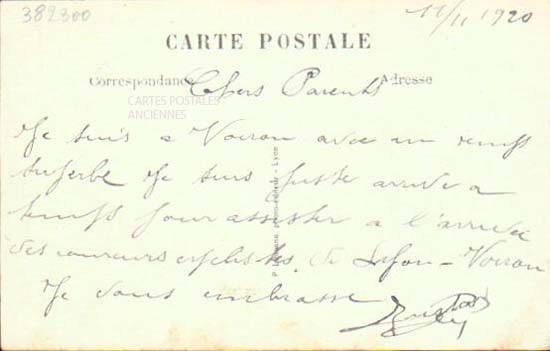 382300
11/11 1920
CARTE POSTALE
Correspondance Adresse
Chers Parents
CARTES POSTALES
ANCIENNES
Je suis a Voiron avec un temps
superbe Je suis juste arrivé a
temps pour assister a l'arrivée
des coureurs cyclistes de Lyon-Voiron
Je vous embrasse